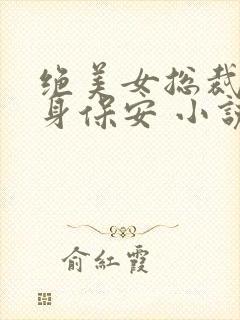 绝美女总裁
身保安 小说
俞红霞